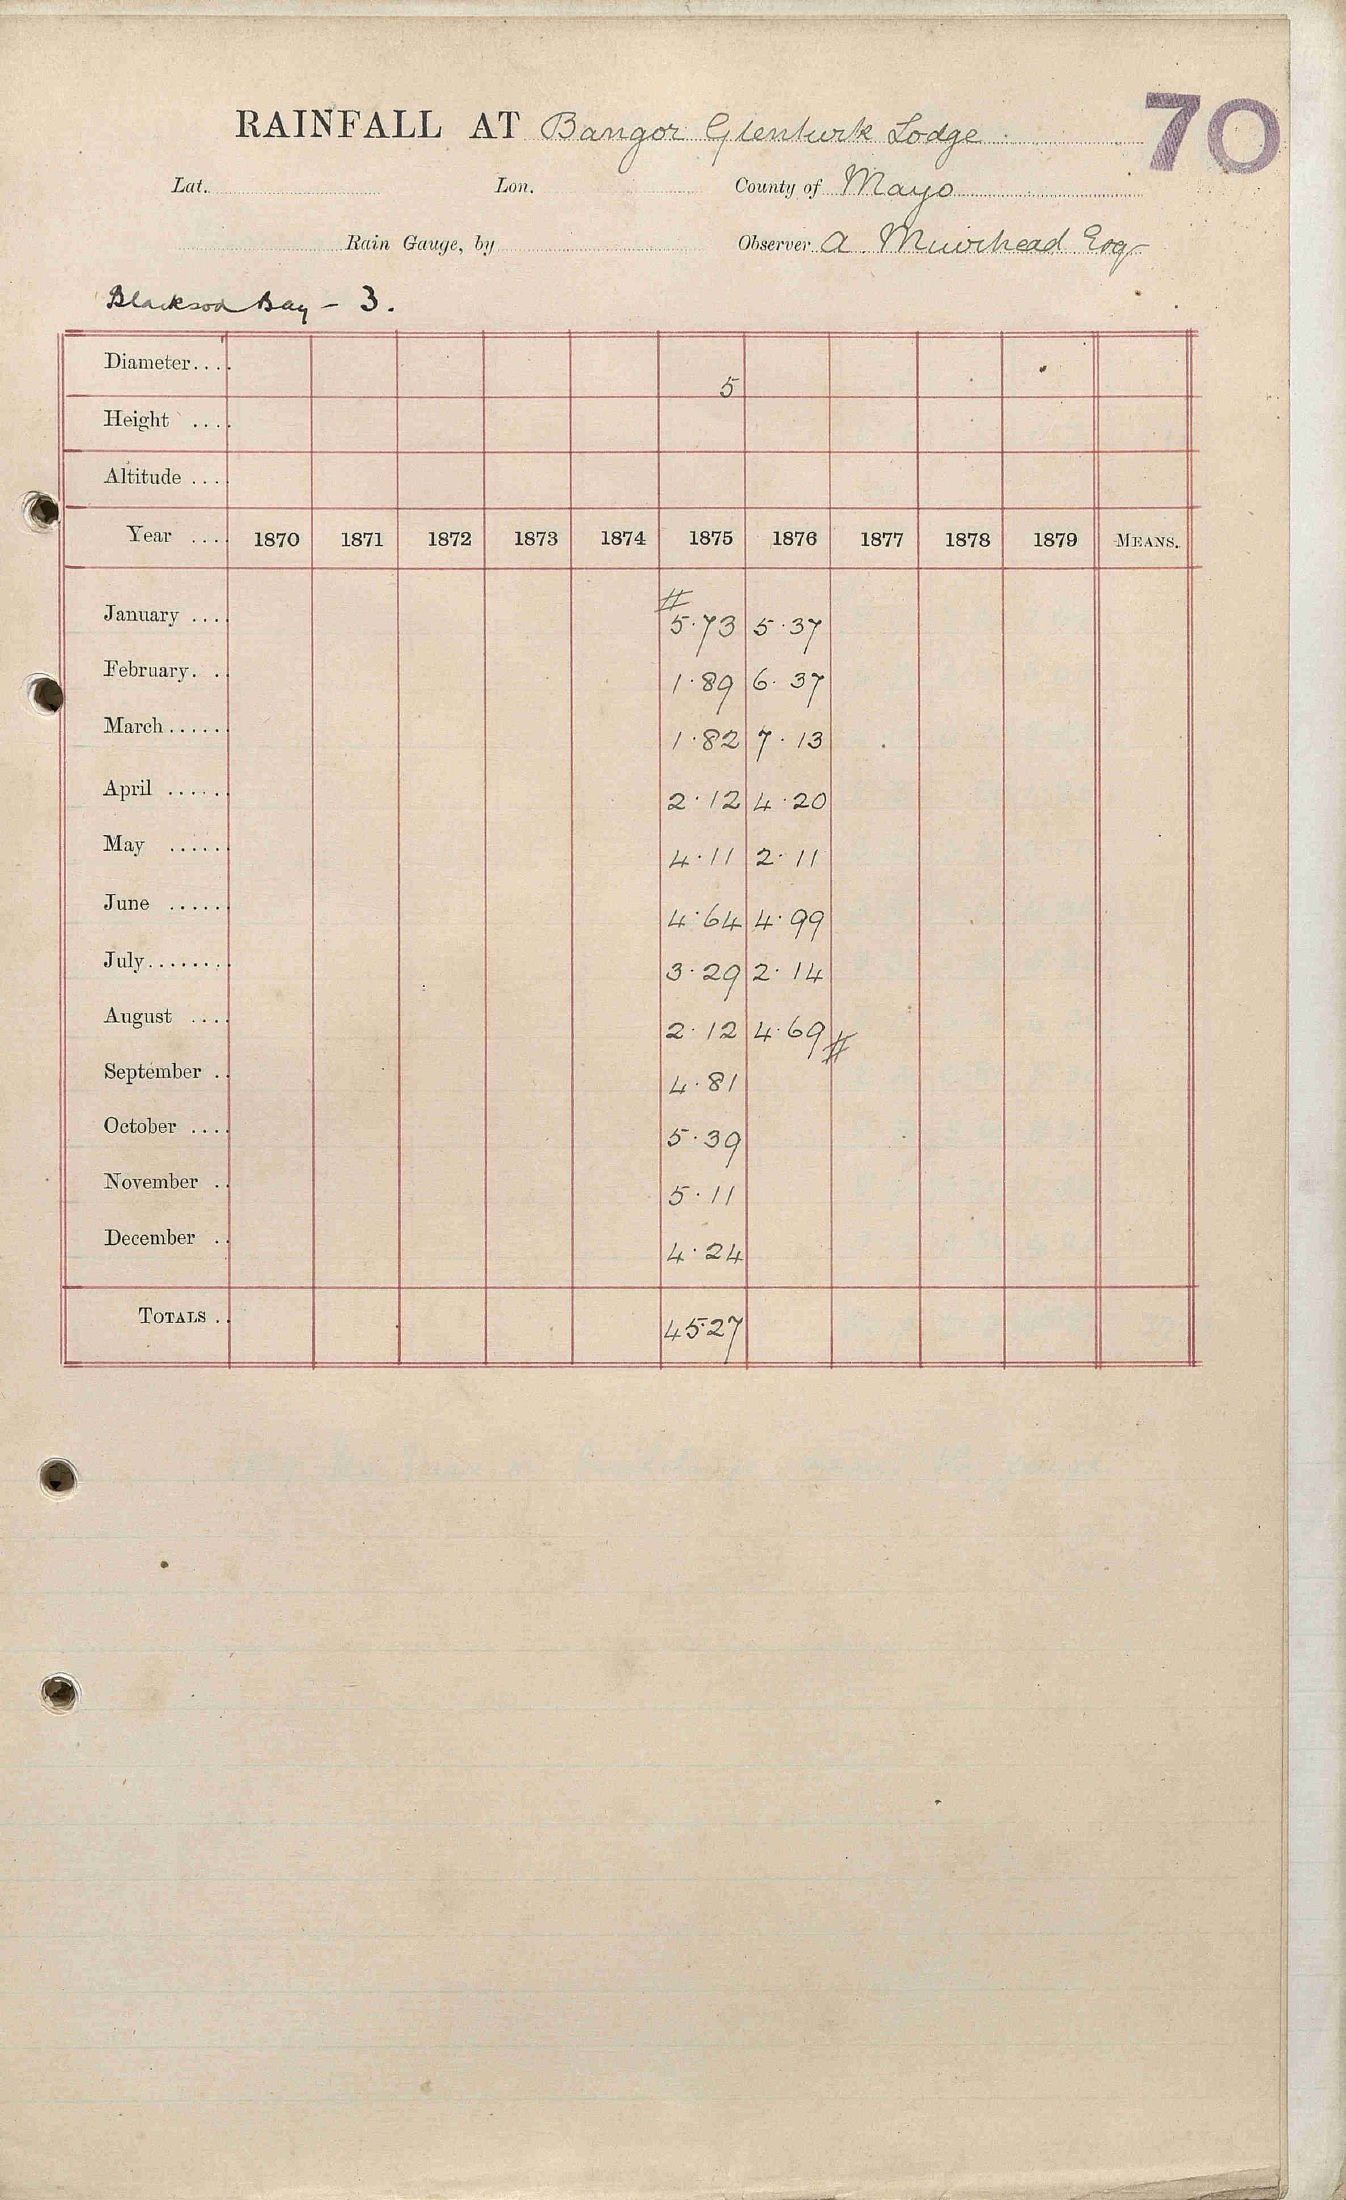 70
RAINFALL AT Bangor Glenturk Lodge
Lat. Lon. County of Mayo
Rain Gauge, by Observer A. Muirhead Esq
Blacksod Bay - 3.
Diameter.... 5
Height ....
Altitude ...
Year .... 1870 1871 1872 1873 1874 1875 1876 1877 1878 1879 MEANS.
#
January .... 5.73 5.37
February. . 1.89 6.37
March...... 1.82 7.13
April ...... 2.12 4.20
May ..... 4.11 2.11
June ..... 4.64 4.99
July........ 3.29 2.14
August .... 2.12 4.69 #
September . 4.81
October .... 5.39
November . 5.11
December . 4.24
TOTALS . 45.27